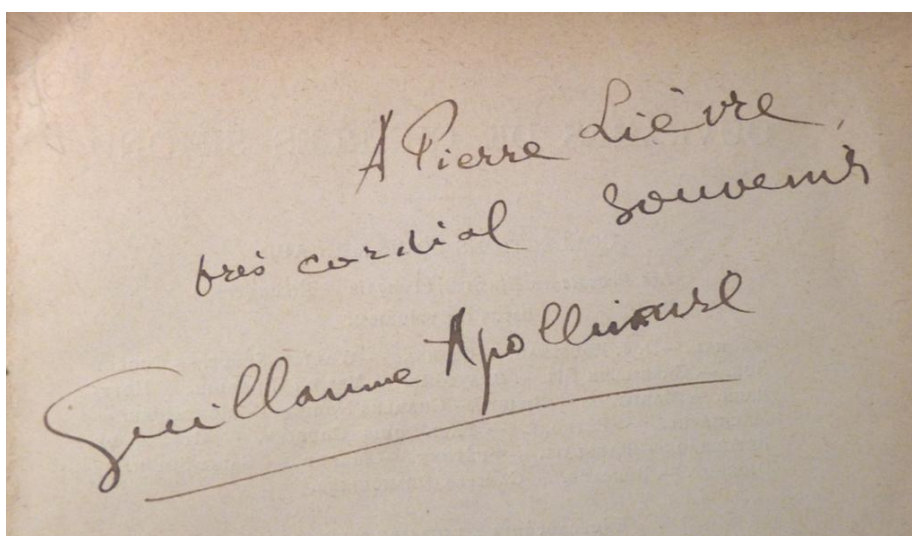 A Pierre Lièvre,
très cordial souvenir
Guillaume Apollinaire